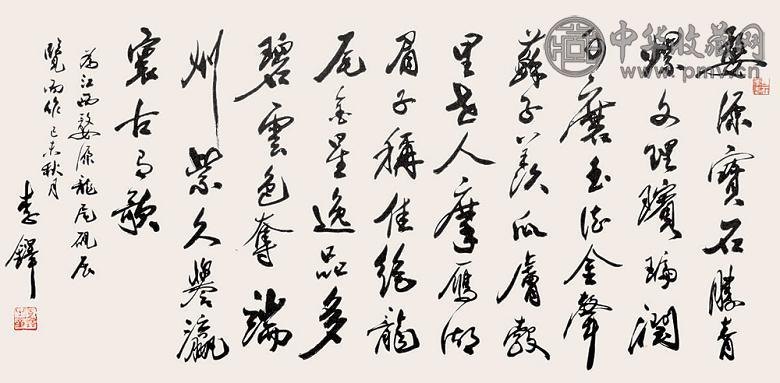 婺源寶石勝青
螺文理潤
磨玉德金聲
蘇子瓜膚縠
里世人摩雁湖
眉子稱佳絕龍
尾金星逸品多
碧雲色奪端
州紫久譽瀛
寰古歌
為江西婺源龍尾硯展
覽而作己未秋月
李鐸
中华收藏网
www.pmv.cn